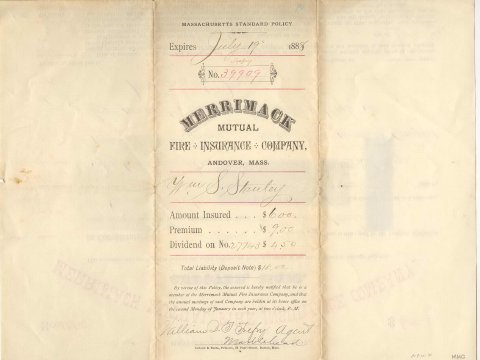 MASSACHUSETTS STANDARD POLICY.
Expires July 19 1888
No. 39909
MERRIMACK
MUTUAL
FIRE INSURANCE COMPANY,
ANDOVER, MASS.
Wm S.
Amount Insured . . . $ 600.
Premium . . . . . . $ 9.00
Dividend on No. 27943 $ 4.50
Total Liability (Deposit Note) $
By virtue of this Policy, the assured is hereby notified that he is a
member of the Merrimack Mutual Fire Insurance Company, and that
the annual meetings of said Company are holden at its home office on
the second Monday of January in each year, at two o'clock, P. M.
William Agent
Marblehead